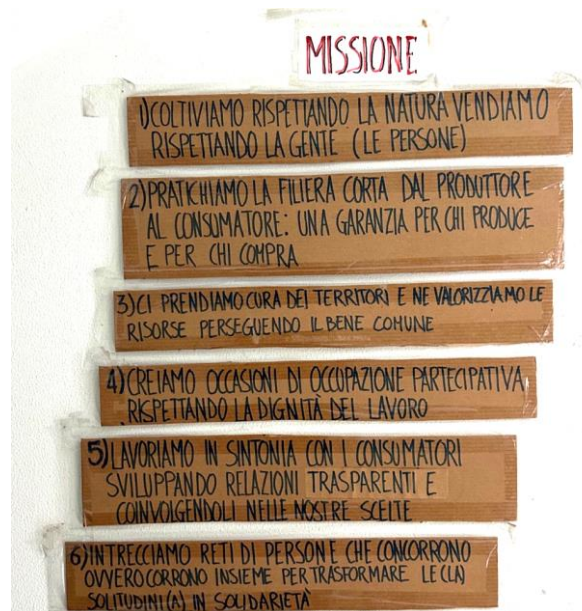 MISSIONE
1) COLTIVIAMO RISPETTANDO LA NATURA VENDIAMO
RISPETTANDO LA GENTE (LE PERSONE)
2) PRATICHIAMO LA FILIERA CORTA DAL PRODUTTORE
AL CONSUMATORE: UNA GARANZIA PER CHI PRODUCE
E PER CHI COMPRA
3) CI PRENDIAMO CURA DEI TERRITORI E NE VALORIZZIAMO LE
RISORSE PERSEGUENDO IL BENE COMUNE
4) CREIAMO OCCASIONI DI OCCUPAZIONE PARTECIPATIVA
RISPETTANDO LA DIGNITÀ DEL LAVORO
5) LAVORIAMO IN SINTONIA CON I CONSUMATORI
SVILUPPANDO RELAZIONI TRASPARENTI E
COINVOLGENDOLI NELLE NOSTRE SCELTE
6) INTRECCIAMO RETI DI PERSONE CHE CONCORRONO
OVVERO CORRONO INSIEME PER TRASFORMARE LE (LA)
SOLITUDINI (A) IN SOLIDARIETÀ